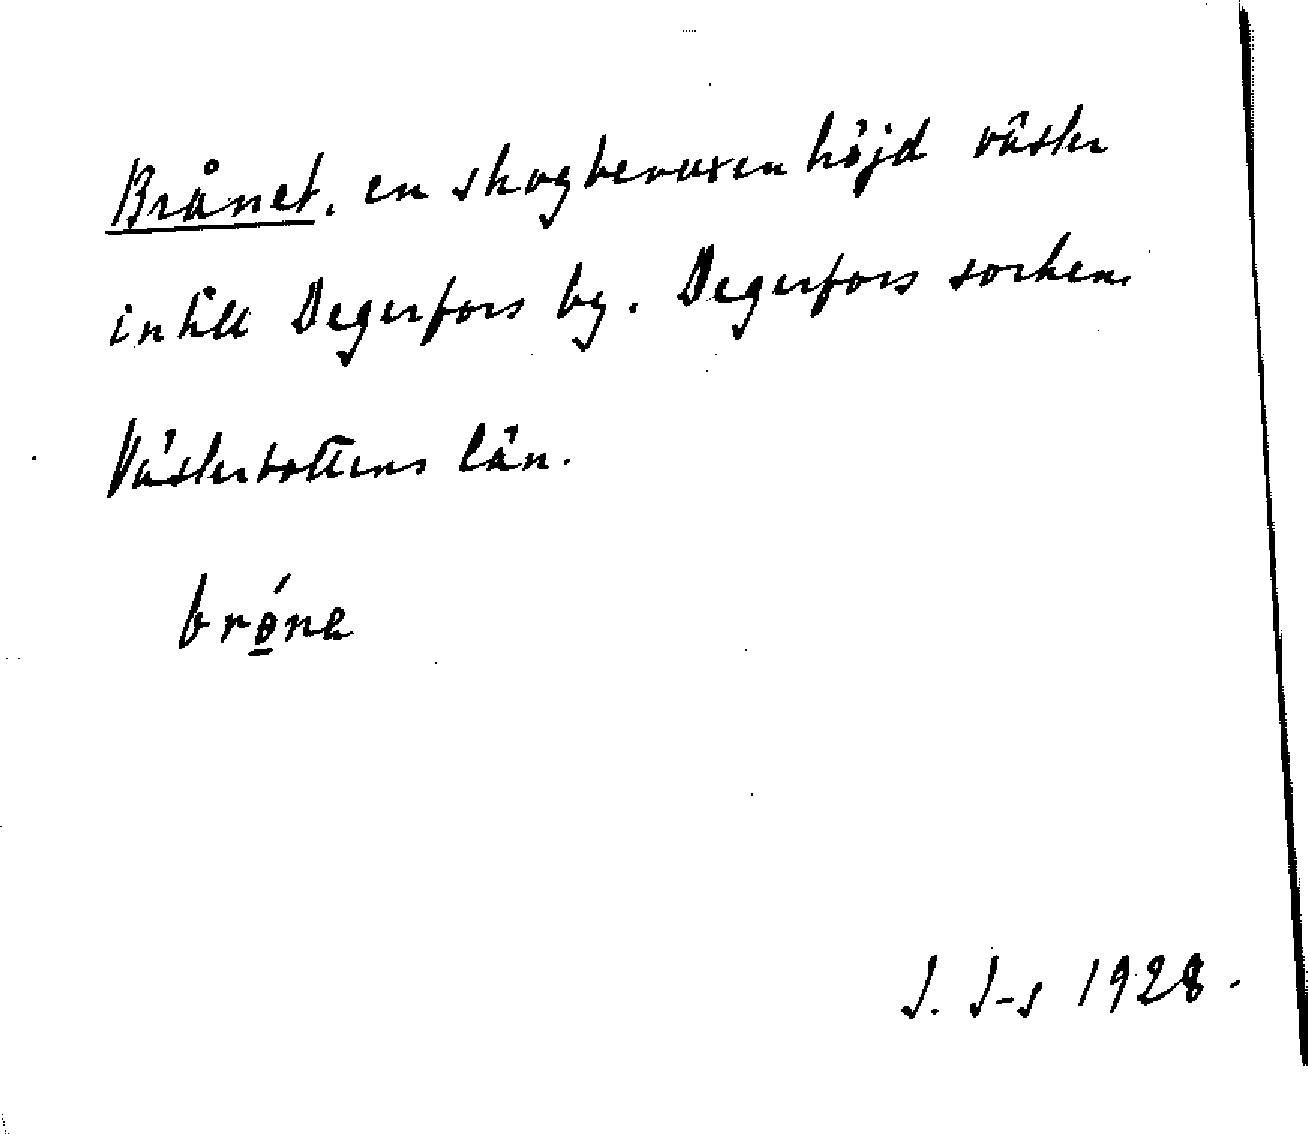 Brånet. en skogbevuxen höjd väster
intill Degerfors by. Degerfors socken.
Västerbottens län.
brǿ̱ne
J. J-s 1928.